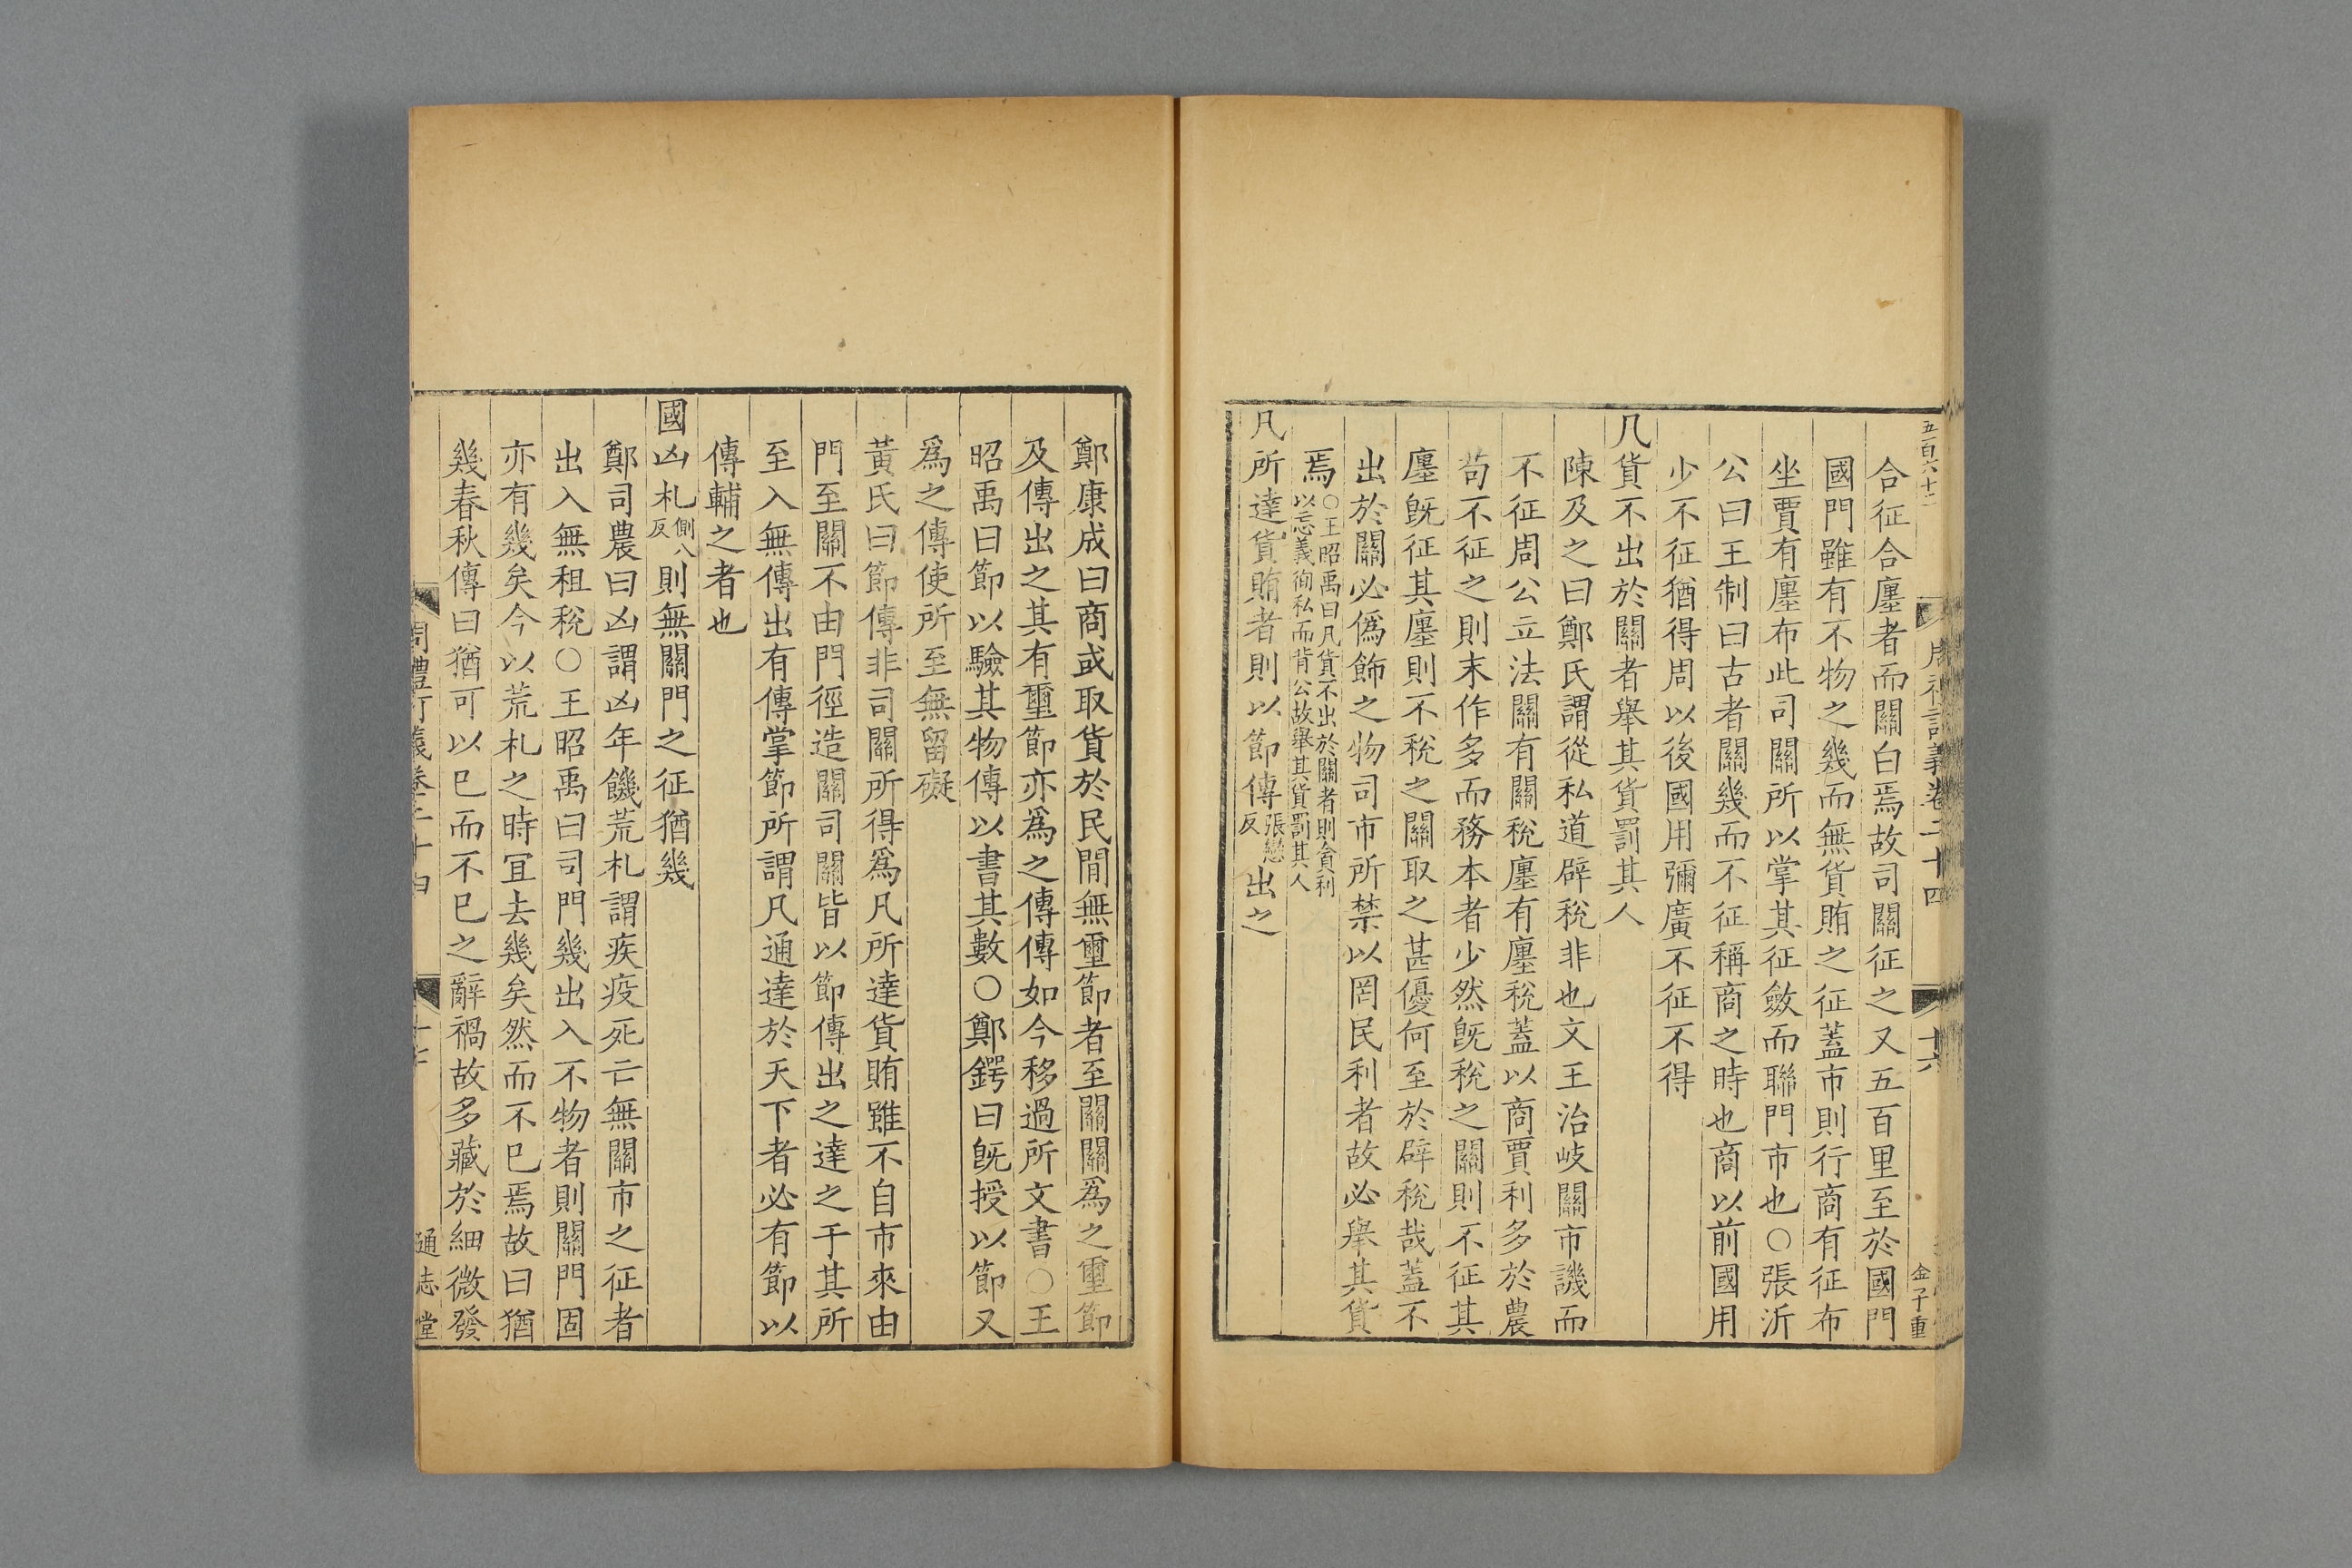 五百六十二
周禮訂義卷二十四
十六
金子重
合征合廛者而關白焉故司關征之又五百里至於國門
國門雖有不物之幾而無貨賄之征蓋市則行商有征布
坐賈有廛布此司關所以掌其征斂而聯門市也○張沂
公曰王制曰古者關幾而不征稱商之時也商以前國用
少不征猶得周以後國用彌廣不征不得
凡貨不出於關者舉其貨罰其人
陳及之曰鄭氏謂從私道辟稅非也文王治岐關市譏而
不征周公立法關有關稅廛有廛稅蓋以商賈利多於農
苟不征之則末作多而務本者少然旣稅之關則不征其
廛旣征其廛則不稅之關取之甚優何至於辟稅哉蓋不
出於關必僞飾之物司市所禁以罔民利者故必舉其貨
焉○王昭禹曰凡貨不出於關者則貪利以忘義徇私而背公故舉其貨罰其人
凡所達貨賄者則以節傳張戀反出之
鄭康成曰商或取貨於民間無璽節者至關關爲之璽節
及傳出之其有璽節亦爲之傳傳如今移過所文書○王
昭禹曰節以驗其物傳以書其數○鄭鍔曰旣授以節又
爲之傳使所至無留礙
黃氏曰節傳非司關所得爲凡所達貨賄雖不自市來由
門至關不由門徑造關司關皆以節傳出之達之于其所
至入無傳出有傳掌節所謂凡通達於天下者必有節以
傳輔之者也
國凶札側八反則無關門之征猶幾
鄭司農曰凶謂凶年饑荒札謂疾疫死亡無關市之征者
出入無租稅○王昭禹曰司門幾出入不物者則關門固
亦有幾矣今以荒札之時宜去幾矣然而不巳焉故曰猶
幾春秋傳曰猶可以巳而不巳之辭禍故多藏於細微發
周禮訂義卷二十四
十七
通志堂